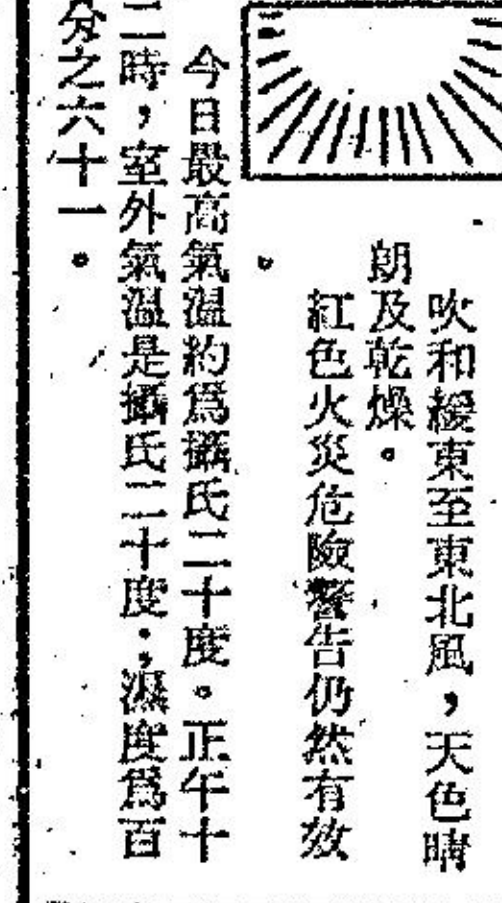 吹和緩東至東北風，天色晴
朗及乾燥。
紅色火災危險警告仍然有效
。
今日最高氣溫約為攝氏二十度。正午十
二時，室外氣溫是攝氏二十度；濕度為百
分之六十一。